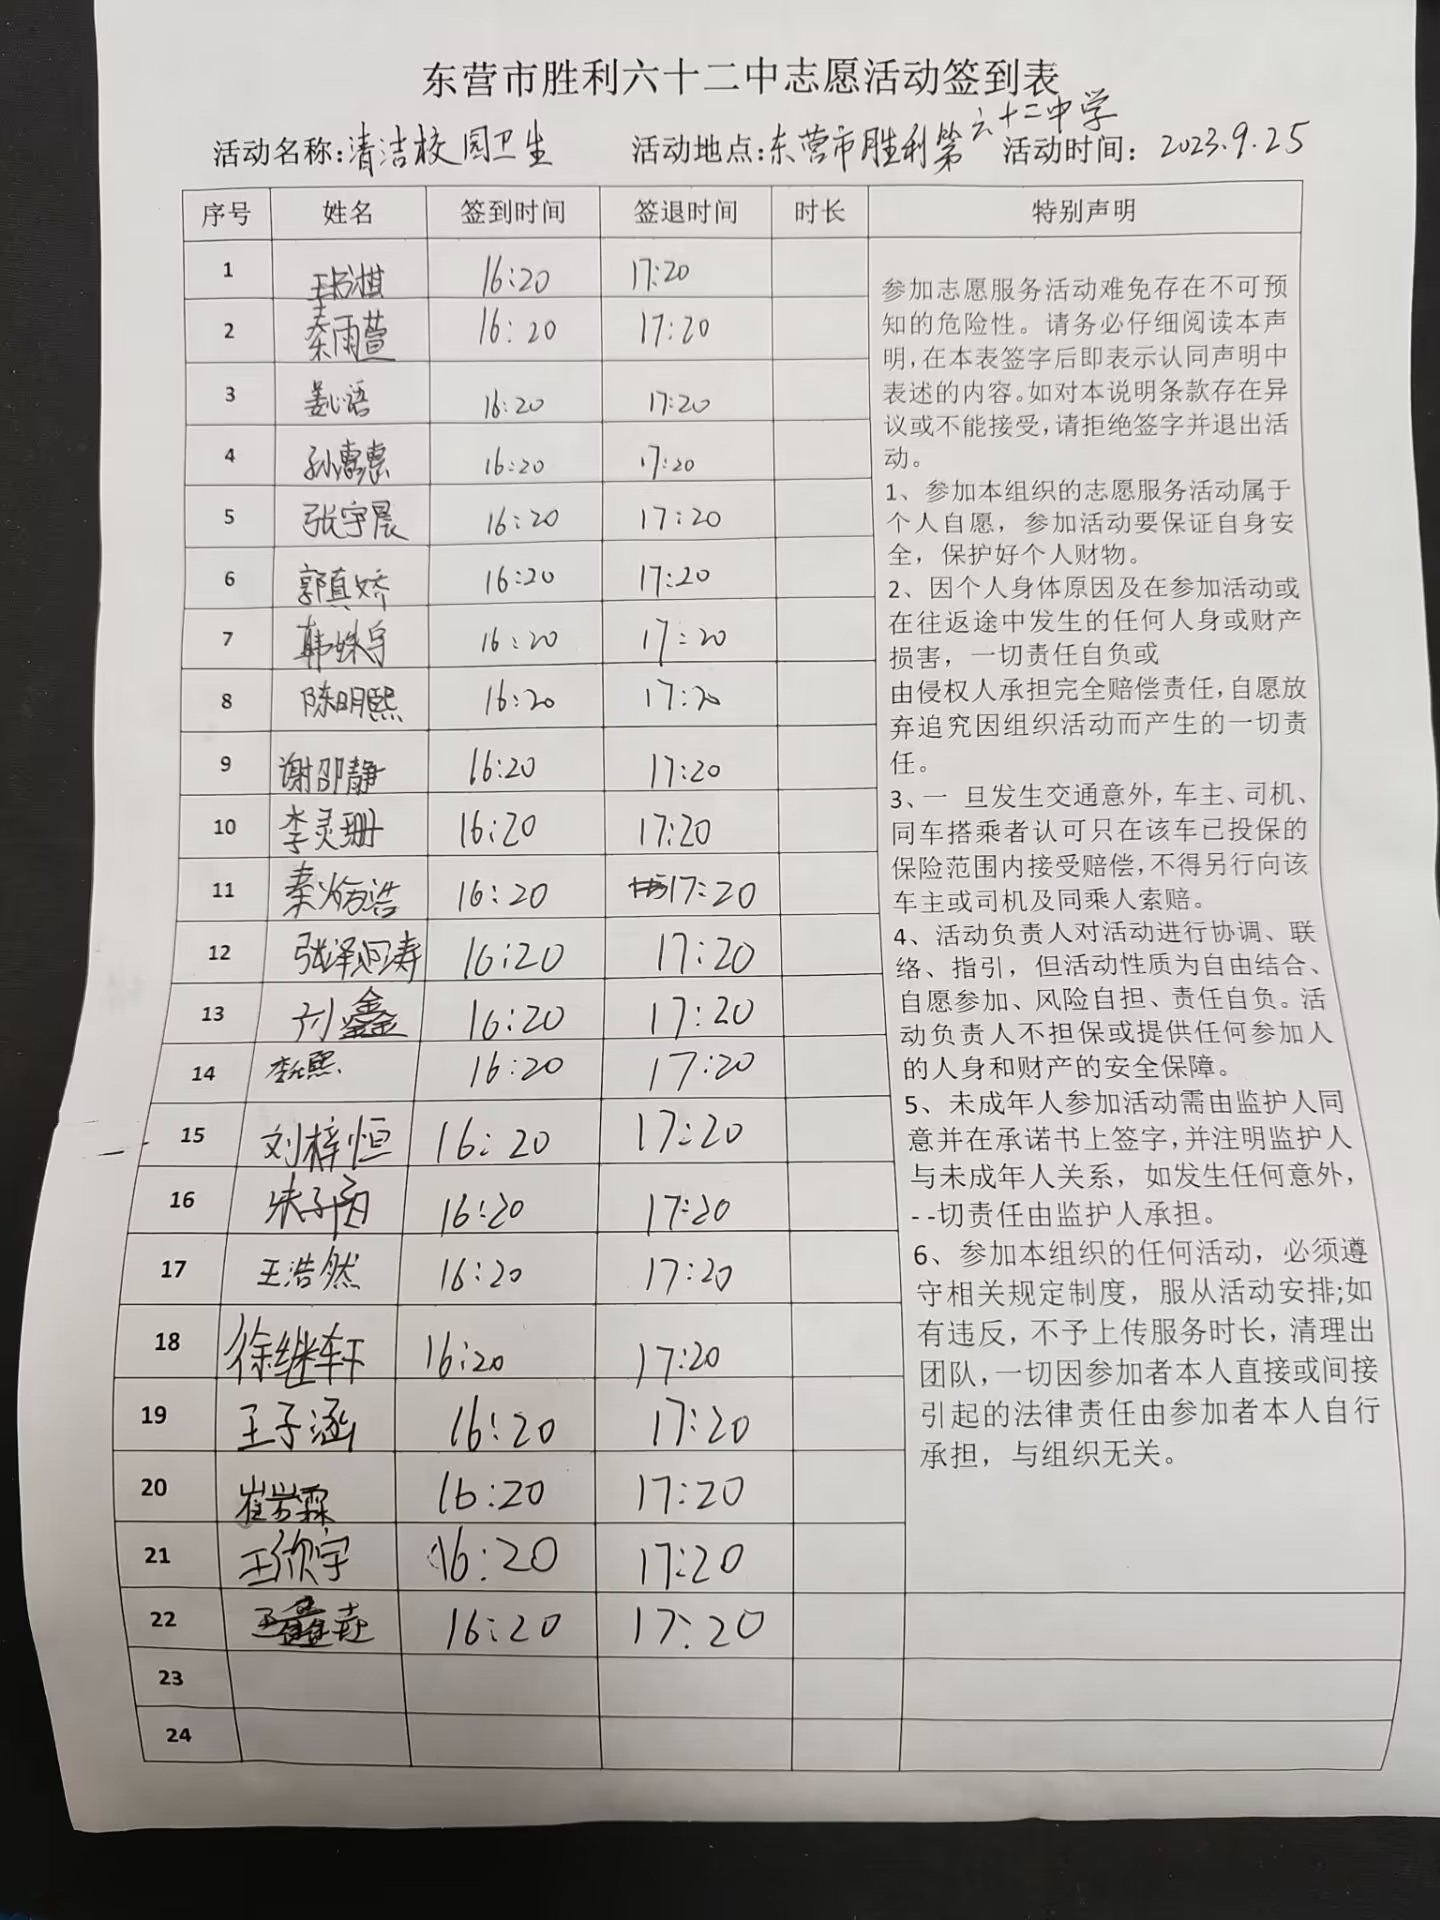 东营市胜利六十二中志愿活动签到表
活动名称:清洁校园卫生 活动地点:东营市胜利第六十二中学 活动时间：2023.9.25
序号 姓名 签到时间 签退时间 时长 特别声明
1 16:20 17:20
2 秦雨萱 16:20 17:20
3 姜心语 16:20 17:20
4 孙惠惠 16:20 17:20
5 张宇晨 16:20 17:20
6 郭真娇 16:20 17:20
7 韩姝宇 16:20 17:20
8 陈明熙 16:20 17:20
9 谢邵静 16:20 17:20
10 李灵珊 16:20 17:20
11 16:20 17:20
12 16:20 17:20
13 刘鑫 16:20 17:20
14 16:20 17:20
15 刘梓恒 16:20 17:20
16 16:20 17:20
17 王浩然 16:20 17:20
18 徐继轩 16:20 17:20
19 王子涵 16:20 17:20
20 16:20 17:20
21 王欣宇 16:20 17:20
22 16:20 17:20
23
24
参加志愿服务活动难免存在不可预
知的危险性。请务必仔细阅读本声
明,在本表签字后即表示认同声明中
表述的内容。如对本说明条款存在异
议或不能接受,请拒绝签字并退出活
动。
1、参加本组织的志愿服务活动属于
个人自愿，参加活动要保证自身安
全，保护好个人财物。
2、因个人身体原因及在参加活动或
在往返途中发生的任何人身或财产
损害，一切责任自负或
由侵权人承担完全赔偿责任,自愿放
弃追究因组织活动而产生的一切责
任。
3、一 旦发生交通意外,车主、司机、
同车搭乘者认可只在该车已投保的
保险范围内接受赔偿,不得另行向该
车主或司机及同乘人索赔。
4、活动负责人对活动进行协调、联
络、指引，但活动性质为自由结合、
自愿参加、风险自担、责任自负。活
动负责人不担保或提供任何参加人
的人身和财产的安全保障。
5、未成年人参加活动需由监护人同
意并在承诺书上签字,并注明监护人
与未成年人关系，如发生任何意外，
--切责任由监护人承担。
6、参加本组织的任何活动，必须遵
守相关规定制度，服从活动安排;如
有违反，不予上传服务时长，清理出
团队,一切因参加者本人直接或间接
引起的法律责任由参加者本人自行
承担，与组织无关。